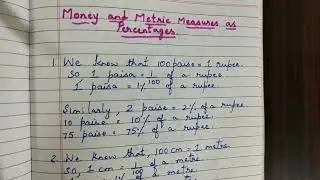 Money and Metric Measures as
Percentages.
1. We know that 100 paise = 1 rupee.
So 1 paisa = 1/100 of a rupee.
1 paisa = 1% of a rupee.
Similarly, 2 paise = 2% of a rupee
10 paise = 10% of a rupee.
75 paise = 75% of a rupee.
2. We know that, 100 cm = 1 metre.
So, 1 cm = 1/100 of a metre
of a metre.